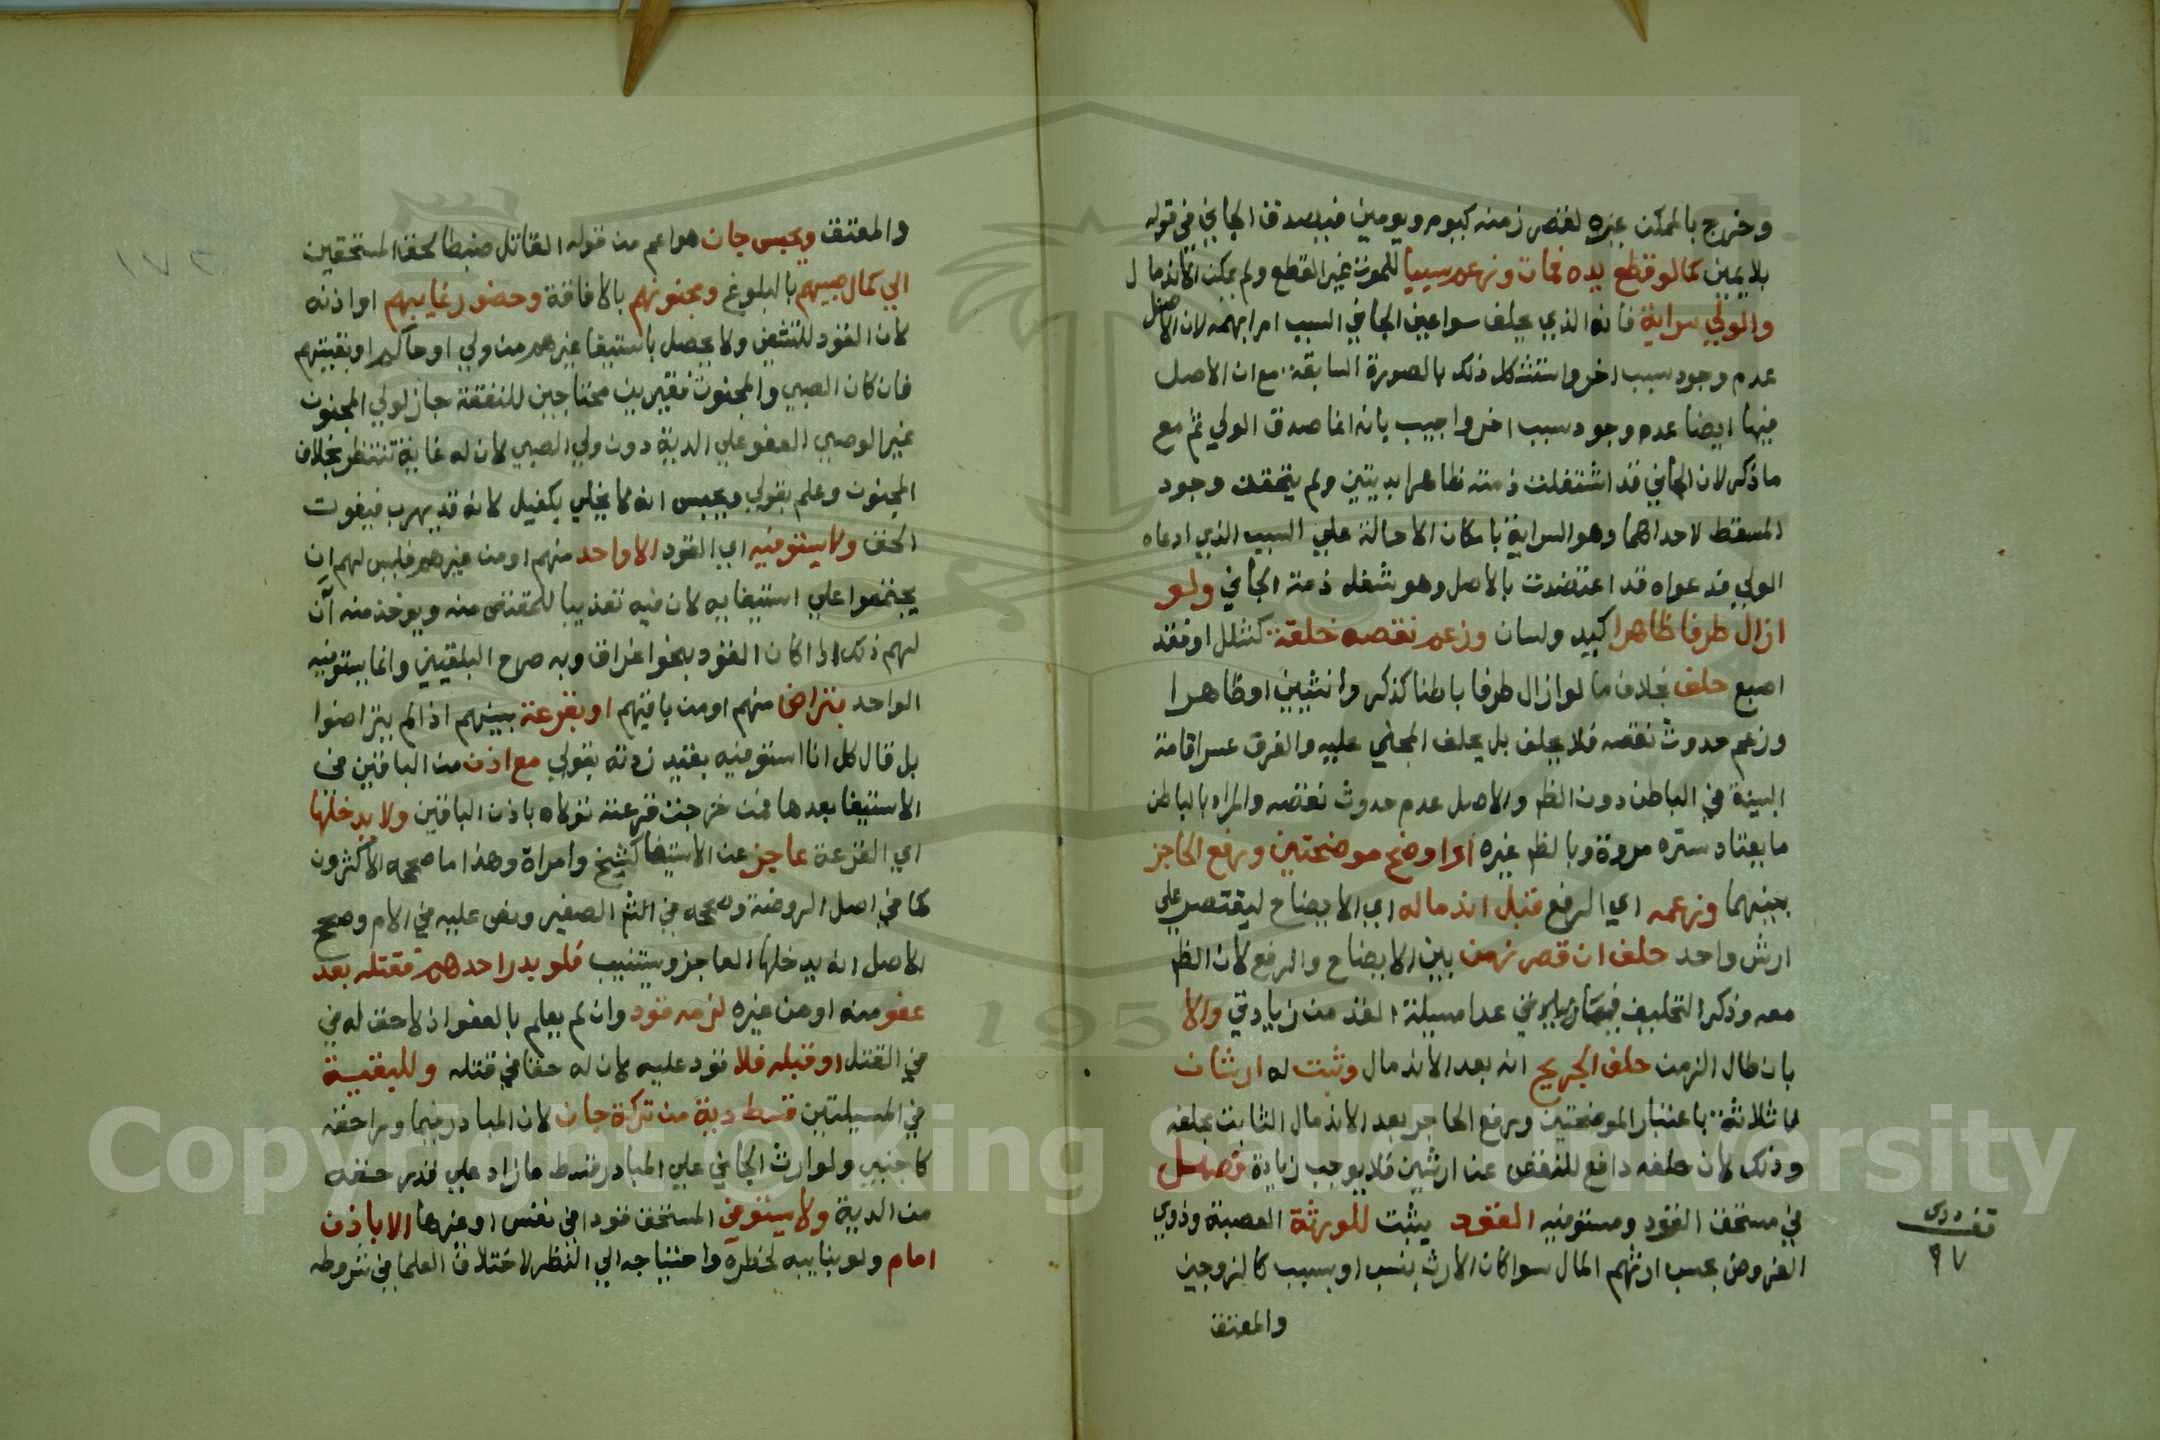 وخرج بالممكن غيره لقصر زمنه كيوم ويومين فيصدق الجاني في قوله
بلا يمين كما لو قطع يده فمات وزعم سببا للموت غير القطع ولم يمكن الاندمال
والولي سراية فانه الذي يحلف سوا عين الجاني السبب ام ابهمه لان الاصل
عدم وجود سبب اخر واستشكل ذلك بالصورة السابقة مع ان الاصل
فيها ايضا عدم وجود سبب اخر واجيب بانه انما صدق الولي ثم مع
ما ذكر لان الجاني قد اشتغلت ذمته ظاهرا بديتين ولم يتحقق وجود
المسقط لاحداهما وهو السراية بامكان الاحالة علي السبب الذي ادعاه
الولي فدعواه قد اعتضدت بالاصل وهو شغل ذمة الجاني ولو
ازال طرفا ظاهرا كيد ولسان وزعم نقصه خلقة كشلل او فقد
اصبع حلف بخلاف ما لو ازال طرفا باطنا كذكر وانثيين او ظاهرا
وزعم حدوث نقصه فلا يحلف بل يحلف المجني عليه والفرق عسر اقامة
البينة في الباطن دون الظم والاصل عدم حدوث نقصه والمراد بالباطن
ما يعتاد ستره مروة وبالظم غيره او اوضح موضحتين ورفع الحاجز
بينهما وزعمه اي الرفع قبل اندماله اي الايضاح ليقتصر علي
ارش واحد حلف ان قصر زمن بين الايضاح والرفع لان الظم
معه وذكر التحليف في عدا مسيلة القد من زيادتي والا
بان طال الزمن حلف الجريح انه بعد الاندمال وثبت له ارشان
لا ثلاثة باعتبار الموضحتين ورفع الحاجز بعد الاندمال الثابت بحلفه
وذلك لان حلفه دافع للنقص عن ارشين فلا يوجب زيادة فصل
في مستحق القود ومستوفيه القود يثبت للورثة العصبة وذوي
الفروض بحسب ارثهم المال سوا كان الارث بنسب او بسبب كالزوجين
والمعتق
٩٧
والمعتق ويحبس جان هو اعم من قوله القاتل ضبطا لحق المستحقين
الي كمال صبيهم بالبلوغ ومجنونهم بالافاقة وحضور غايبهم او اذنه
لان القود للتشفي ولا يحصل باستيفا غيرهم من ولي او حاكم او بقيتهم
فان كان الصبي والمجنون فقيرين محتاجين للنفقة جاز لولي المجنون
غير الوصي العفو علي الدية دون ولي الصبي لان له غاية تنتظر بخلاف
المجنون وعلم بقولي ويحبس انه لا يخلي بكفيل لانه قد يهرب فيفوت
الحق ولا يستوفيه اي القود الا واحد منهم او من غيرهم فليس لهم ان
يجتمعوا علي استيفايه لان فيه تعذيبا للمقتص منه ويوخذ منه ان
لهم ذلك اذا كان القود بنحو اغراق وبه صرح البلقيني وانما يستوفيه
الواحد بتراض منهم او من باقيهم او بقرعة بينهم اذا لم يتراضوا
بل قال كل انا استوفيه بقيد زدته بقولي مع اذن من الباقين في
الاستيفا بعدها فمن خرجت قرعته تولاه باذن الباقين ولا يدخلها
اي القرعة عاجز عن الاستيفا كشيخ وامراة وهذا ما صححه الاكثرون
كما في اصل الروضة وصححه في الشم الصغير ونص عليه في الام وصحح
الاصل انه يدخلها العاجز ويستنيب فلو بدر احدهم فقتله بعد
عفو منه او من غيره لزمه قود وان لم يعلم بالعفو اذ لا حق له في
في القتل او قبله فلا قود عليه لان له حقا في قتله وللبقية
في المسيلتين قسط دية من تركة جان لان المبادر فيما ورا حقه
كاجنبي ولوارث الجاني علي المبادر قسط ما زاد علي قدر حقه
من الدية ولا يستوفي المستحق قودا في نفس او غيرها الا باذن
امام ولو بنايبه لخطره واحتياجه الي النظر لاختلاف العلما في شروطه
Copyright © King Saud University
1957